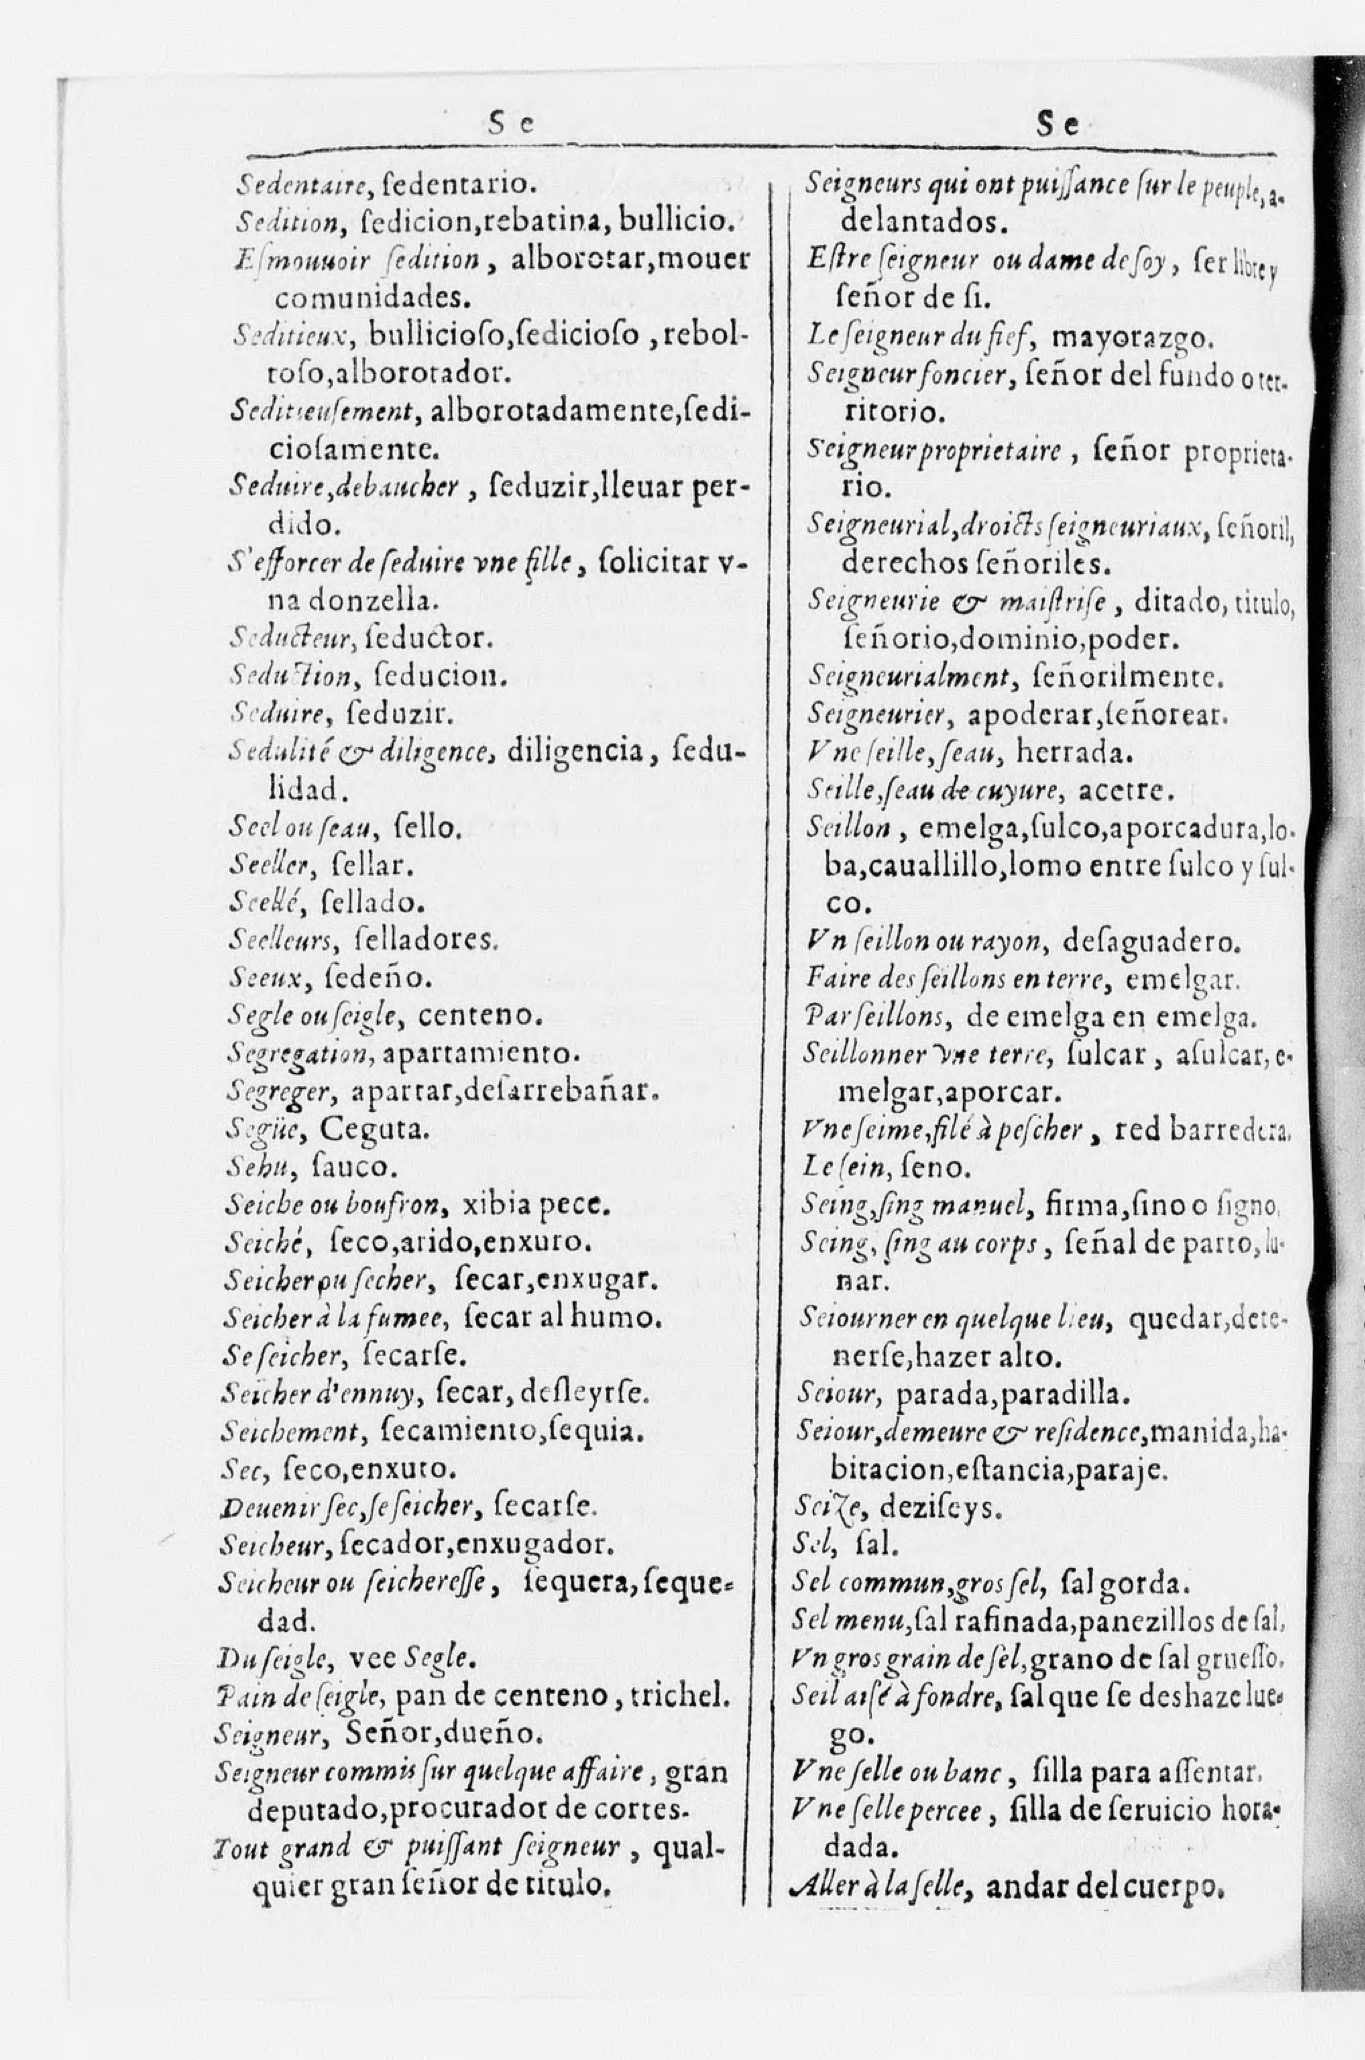 S e
Sedentaire, ſedentario.
Sedition, ſedicion,rebatina, bullicio.
Eſmouuoir ſedition, alborotar,mouer
comunidades.
Seditieux, bullicioſo,ſedicioſo, rebol-
toſo,alborotador.
Seditieuſement, alborotadamente,ſedi-
cioſamente.
Seduire,debaucher, ſeduzir,lleuar per-
dido.
S'efforcer de ſeduire vne fille, ſolicitar v-
na donzella.
Seducteur, ſeductor.
Seduction, ſeducion.
Seduire, ſeduzir.
Sedulité & diligence, diligencia, ſedu-
lidad.
Seel ou ſeau, ſello.
Seeller, ſellar.
Seellé, ſellado.
Seelleurs, ſelladores.
Seeux, ſedeño.
Segle ou ſeigle, centeno.
Segregation, apartamiento.
Segreger, apartar,deſarrebañar.
Següe, Ceguta.
Sehu, ſauco.
Seiche ou bouſron, xibia pece.
Seiché, ſeco,arido,enxuto.
Seicher ou ſecher, ſecar,enxugar.
Seicher à la fumee, ſecar al humo.
Se ſeicher, ſecarſe.
Seicher d'ennuy, ſecar, deſleyrſe.
Seichement, ſecamiento,ſequia.
Sec, ſeco,enxuto.
Deuenir ſec,ſe ſeicher, ſecarſe.
Seicheur, ſecador,enxugador.
Seicheur ou ſeichereſſe, ſequera, ſeque-
dad.
Du ſeigle, vee Segle.
Pain de ſeigle, pan de centeno, trichel.
Seigneur, Señor,dueño.
Seigneur commis ſur quelque affaire, gran
deputado,procurador de cortes.
Tout grand & puiſſant ſeigneur, qual-
quier gran ſeñor de titulo.
S e
Seigneurs qui ont puiſſance ſur le peuple, a-
delantados.
Eſtre ſeigneur ou dame de ſoy, ſer libre y
ſeñor de ſi.
Le ſeigneur du fief, mayorazgo.
Seigneur foncier, ſeñor del fundo o ter-
ritorio.
Seigneur proprietaire, ſeñor proprieta-
rio.
Seigneurial,droicts ſeigneuriaux, ſeñoril,
derechos ſeñoriles.
Seigneurie & maiſtriſe, ditado, titulo,
ſeñorio,dominio,poder.
Seigneurialment, ſeñorilmente.
Seigneurier, apoderar,ſeñorear.
Vne ſeille, ſeau, herrada.
Seille,ſeau de cuyure, acetre.
Seillon, emelga,ſulco,aporcadura,lo-
ba,cauallillo,lomo entre ſulco y ſul-
co.
Vn ſeillon ou rayon, deſaguadero.
Faire des ſeillons en terre, emelgar.
Par ſeillons, de emelga en emelga.
Seillonner vne terre, ſulcar, aſulcar, e-
melgar,aporcar.
Vne ſeime,filé à peſcher, red barredera.
Le ſein, ſeno.
Seing,ſing manuel, firma,ſino o ſigno.
Seing, ſing au corps, ſeñal de parto, lu-
nar.
Seiourner en quelque lieu, quedar,dete-
nerſe,hazer alto.
Seiour, parada,paradilla.
Seiour,demeure & reſidence,manida,ha-
bitacion,eſtancia,paraje.
Seize, deziſeys.
Sel, ſal.
Sel commun,gros ſel, ſal gorda.
Sel menu,ſal rafinada,panezillos de ſal.
Vn gros grain de ſel,grano de ſal grueſſo.
Seil aisé à fondre, ſal que ſe deshaze lue-
go.
Vne ſelle ou banc, ſilla para aſſentar.
Vne ſelle percee, ſilla de ſeruicio hora-
dada.
Aller à la ſelle, andar del cuerpo.